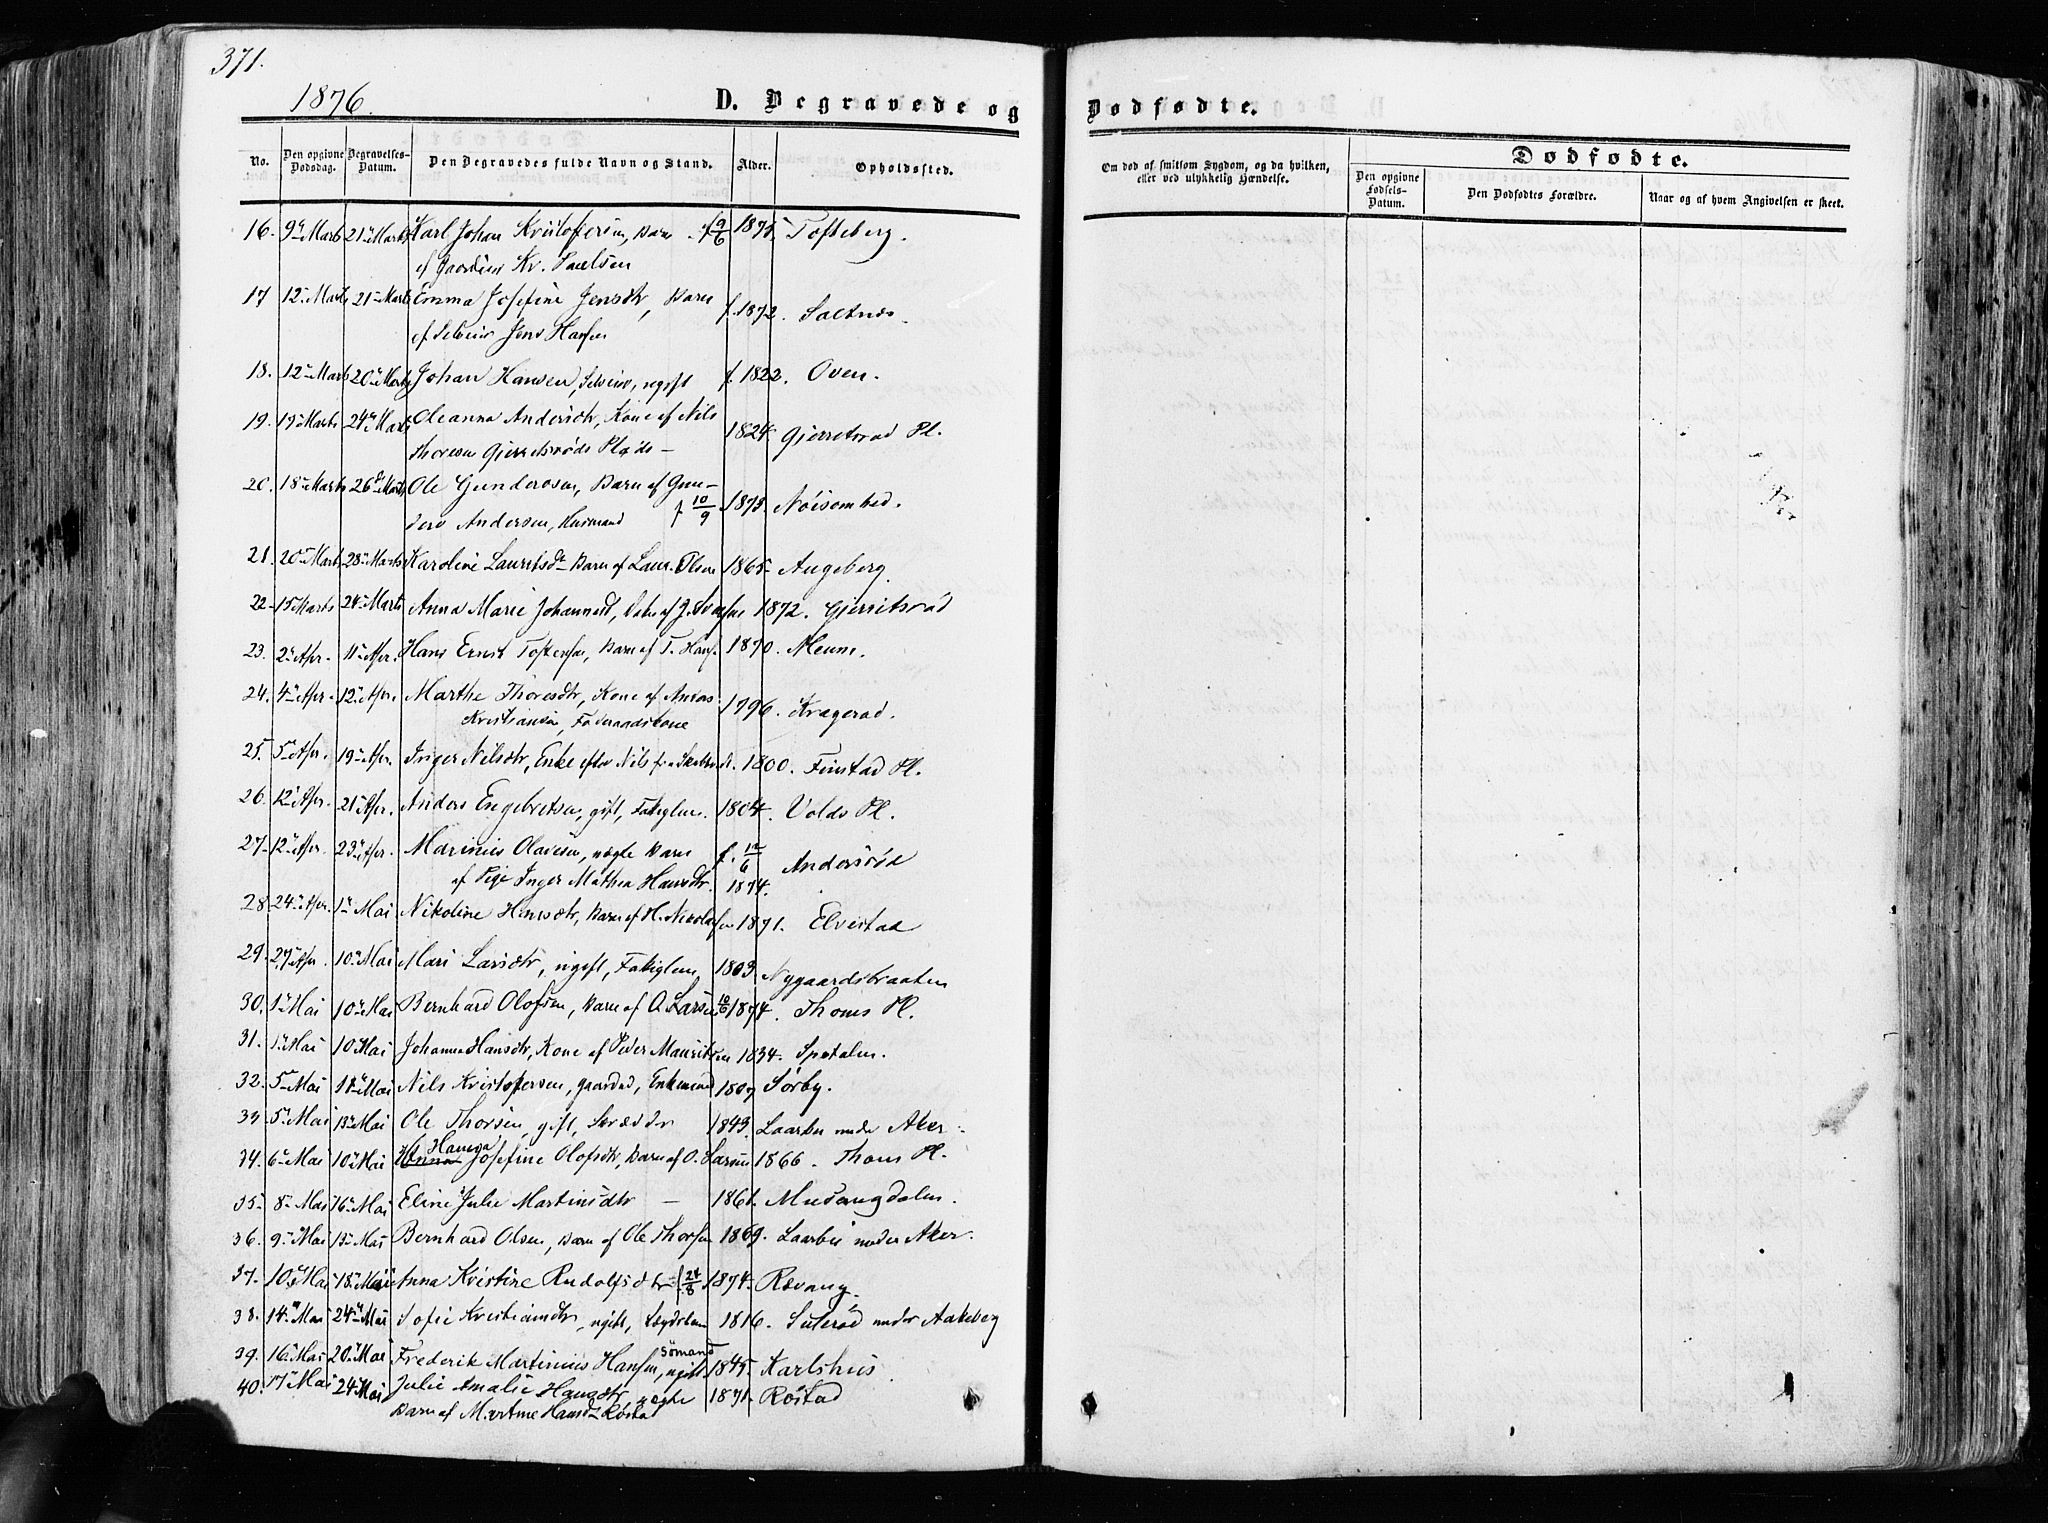 371.
1876.
D. Begravede og
Dødfødte.
No.
Den opgivne Dødsdag.
Begravelses-Datum.
Den Begravedes fulde Navn og Stand.
Alder.
Opholdssted.
Om død af smitsom Sygdom, og da hvilken,
eller ved ulykkelig Hændelse.
Dødfødte.
Den opgivne Fødsels-Datum.
Den Dødfødtes Forældre.
Naar og af hvem Angivelsen er skeet.
16. 9de Marts 21de Marts Karl Johan Kristofersen, Barn f 9/6 1875 Tofteberg.
af Gaardeier Kr. Paulsen
17 12te Marts 21de Marts Emma Josefine Jensdtr, Barn f. 1872. Saltnæs.
af Selveier Jens Hansen
18. 12te Marts 20de Marts Johan Hansen, Selveier, ugift f. 1822. Oven.
19. 19 Marts 24de Marts Oleanna Andersdtr, Kone af Nils 1824 Gjerretsrød Pl.
Thoresen Gjerretsrøds Plads
20. 18de Marts 26de Marts Ole Gunderosen, Barn af Gun-
dero Andersen, Husmand f 10/9 1873. Nøisomhed.
21. 20de Marts 28de Marts Karoline Lauritsdtr Barn af Laur. Olsen 1865 Augeberg
22 15 Marts 24de Marts Anna Marie Johannesdt, Datr af J. 1872. Gjerretsrød
23. 2de Apr. 11te Apr. Hans Ernst Toftensen, Barn af T. Hans. 1870.
24. 4de Apr. 12te Apr. Marthe Thoresdtr, Kone af Anras 1796. Kragerød.
Kristiansen, Føderaadskone
25. 5te Apr. 19de Apr. Inger Nilsdtr, Enke efter Nils fra 1800. Finstad Pl.
26. 12te Apr. 21de Apr. Anders Engebretsen, gift, Fattiglem. 1804. Volds Pl.
27. 12te Apr. 23de Apr. Marinius Olavesen, uægte Barn f. 12/6 Andersrød
af Pige Inger Mathea Hansdtr. 1874.
28 24de Apr. 1ste Mai Nikoline Hansdtr, Barn af H. Nicolaisen 1871. Elvestad
29. 27de Apr. 10de Mai Mari Larsdtr, ugift, Fattiglem, 1803. Nygaardsbraaten
30. 1ste Mai 10de Mai Bernhard Olofsen, Barn af O. Larsen 10/6 1874. Thoms Pl.
31. 1ste Mai 10 Mai Johanna Hansdtr, Kone af Peder Mauritsen 1834. Spetalen.
32. 5te Mai 11te Mai Nils Kristofersen, gaardød, Enkemand 1807 Sørby.
33 5te Mai 13de Mai Ole Thorsen, gift, Skrædder 1843. Laarbu under Aker.
34. 6te Mai 10de Mai Hanna Josefine Olofsdtr, Barn af O. Larsen 1866. Thoms Pl.
35. 8de Mai 16de Mai Eline Julie Martinsdtr 1861. Musangdalen.
36. 9de Mai 13de Mai Bernhard Olsen, Barn af Ole Thorsen 1869. Laarbu under Aker.
37. 10de Mai 18de Mai Anna Kristine Rudolfsdtr f. 24/8 1874. Rævang.
38. 14de Mai 24de Mai Sofie Kristiansdtr, ugift, Lægdslem 1816. Suterød under Aakeberg
39. 16de Mai 20de Mai Frederik Martinius Hansen, Sømand ugift 1845. Karlshus
40. 17de Mai 24de Mai Julie Amalie Hansdtr, uægte 1871. Røstad
Barn af Martine Hansdtr Røstad